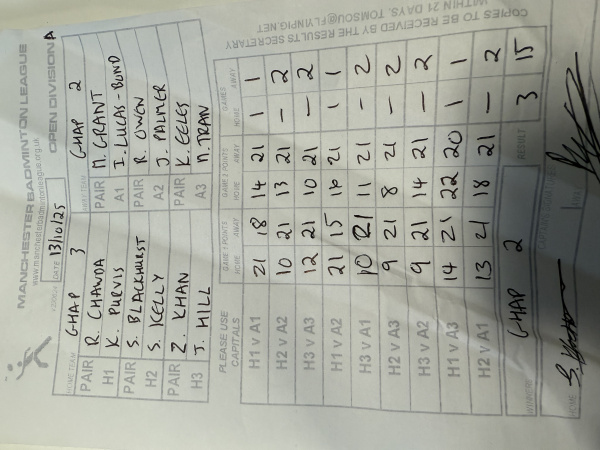 MANCHESTER BADMINTON LEAGUE
www.manchesterbadmintonleague.org.uk
OPEN DIVISION A
DATE 13/10/25
HOME TEAM CHAP 3 AWAY TEAM CHAP 2
PAIR R. CHAWDA PAIR M. GRANT
H1 K. PURVIS A1 I. LUCAS-BUND
PAIR S. BLACKHURST PAIR R. OWEN
H2 S. KELLY A2 J. PALMER
PAIR Z. KHAN PAIR K. ECLES
H3 J. HILL A3 M. TRAN
PLEASE USE CAPITALS GAME 1 POINTS GAME 2 POINTS GAMES
HOME AWAY HOME AWAY HOME AWAY
H1 v A1 21 18 14 21 1 1
H2 v A2 10 21 13 21 - 2
H3 v A3 12 21 10 21 - 2
H1 v A2 21 15 16 21 1 1
H3 v A1 10 21 11 21 - 2
H2 v A3 9 21 8 21 - 2
H3 v A2 9 21 14 21 - 2
H1 v A3 14 21 22 20 1 1
H2 v A1 13 21 18 21 - 2
WINNERS CHAP 2 RESULT 3 15
CAPTAINS SIGNATURES
HOME
COPIES TO BE RECEIVED BY THE RESULTS SECRETARY
WITHIN 21 DAYS. TOMSOU@FLYINPIG.NET